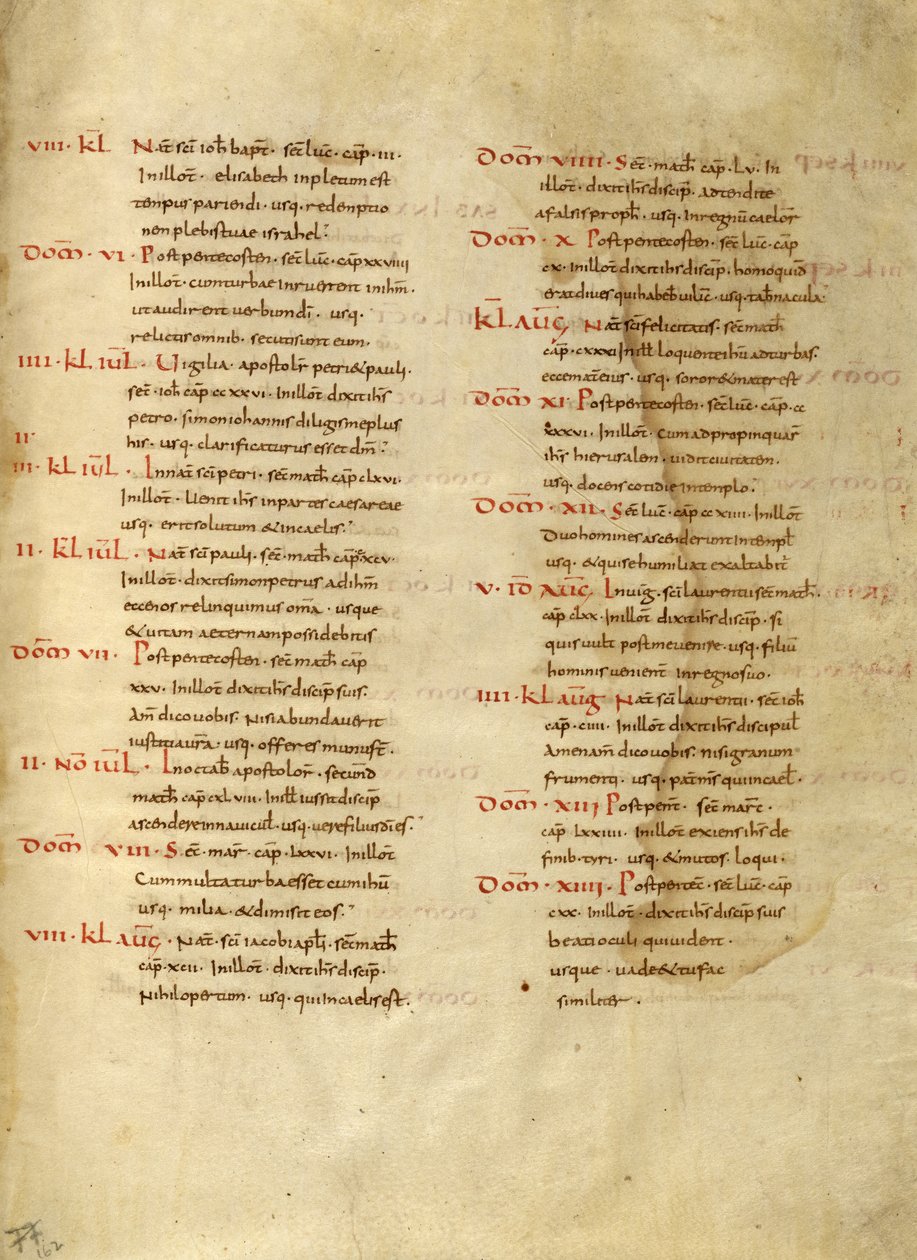 VIII · KL̄ Nat̄ sc̄i ioh̄ bap̄t · sec̄ luc̄ · cap̄ · III ·
In illot̄ · elisabeth inpletum est
tempus pariendi · usq · redemptio
nem plebis tuae israhel ·
DOM̄ · VI · Post pentecosten · sec̄ luc̄ · cap̄ XXVIIII
In illot̄ · cum turbae inruerent in ih̄m ·
ut audirent verbum dī · usq ·
relictis omnib · secuti sunt eum ·
IIII · KL IUL̄ · Uigilia · apostolor̄ petri & pauli ·
sec̄ · ioh̄ cap̄ CCXXVI · In illot̄ dixit ih̄s
petro · simon iohannis diligis me plus
his · usq · clarificaturus esset dm̄ ·
II
III · KL IUL̄ · In nat̄ sc̄i petri · sec̄ math̄ cap̄ CLXVI ·
In illot̄ · Uenit ih̄s in partes caesareae
usq · erit solutum & in caelis ·
II · KL̄ IUL̄ · Nat̄ sc̄i pauli · sec̄ · math̄ cap̄ · XCV ·
In illot̄ · dixit simon petrus ad ih̄m
ecce nos relinquimus om̄a · usque
& uitam aeternam possidebitis
DOM̄ VII · Post pentecosten · sec̄ math̄ cap̄
XXV · In illot̄ dixit ih̄s discip̄ suis ·
Am̄ dico vobis · Nisi abundaverit
iustitia ur̄a · usq · offeres munus t̄ ·
II · NŌ IUL̄ · In octab̄ apostolor̄ · secund̄
math̄ cap̄ CXLVIII · In ill̄ iussit discip̄
ascendere in navicul̄ · usq · vere filius dī es ·
DOM̄ VIII · Sec̄ · mar̄ · cap̄ · LXXVI · In illot̄
Cum multa turba esset cum ih̄u
usq · milia · & dimisit eos ·
VIII · KL AUG̅ · Nat̄ · sc̄i iacobi apl̄i · sec̄ math̄
cap̄ · XCII · In illot̄ · dixit ih̄s discip̄ ·
Nihil opertum · usq · qui in caelis est ·
DOM̄ VIIII · Sec̄ · math̄ cap̄ · LV · In
illot̄ · dixit ih̄s discip̄ · adtendite
a falsis proph̄ · usq · in regnū caelor̄
DOM̄ · X · Post pentecosten · sec̄ luc̄ · cap̄
CX · In illot̄ dixit ih̄s discip̄ · homo quid̄
erat dives qui habeb̄ vilic̄ · usq · tab̄nacula ·
KL̄ AUG̅ Nat̄ sc̄i felicitatis · sec̄ math̄
cap̄ · CXXXI In ill̄ loquente ih̄u ad turbas ·
ecce mat̄ eius · usq · soror & mater est
DOM̄ XI · Post pentecosten · sec̄ luc̄ · cap̄ · CC
XXXVI · In illot̄ · Cum adpropinquar̄
ih̄s hierusalem · uidit civitatem ·
usq · docens cotidie in templo ·
DOM̄ · XII · Sec̄ luc̄ · cap̄ CCXIIII · In illot̄
Duo homines ascenderunt in templ̄
usq · & qui se humiliat exaltabit̄
V · ID̄ AUG̅ · In uig̅ · sc̄i laurentii sec̄ math̄ ·
cap̄ CLXX · In illot̄ dixit ih̄s discip̄ · si
quis vult post me venire · usq · filiū
hominis venient̄ in regno suo ·
IIII · KL AUG̅ Nat̄ sc̄i laurentii · sec̄ ioh̄
cap̄ · CIIII · In illot̄ dixit ih̄s discipul̄
Amen am̄ dico vobis · nisi granum
frumenti · usq · pat̄ ms̄ qui in cael̄ ·
DOM̄ · XIII Post pent̄ · sec̄ marc̄ ·
cap̄ LXXIIII · In illot̄ exiens ih̄s de
finib · tyri · usq · & mutos · loqui ·
DOM̄ · XIIII · Post pentec̄ · sec̄ luc̄ · cap̄
CXX · In illot̄ · dixit ih̄s discip̄ suis
beati oculi qui vident ·
usque · vade & tu fac
similiter ·
162